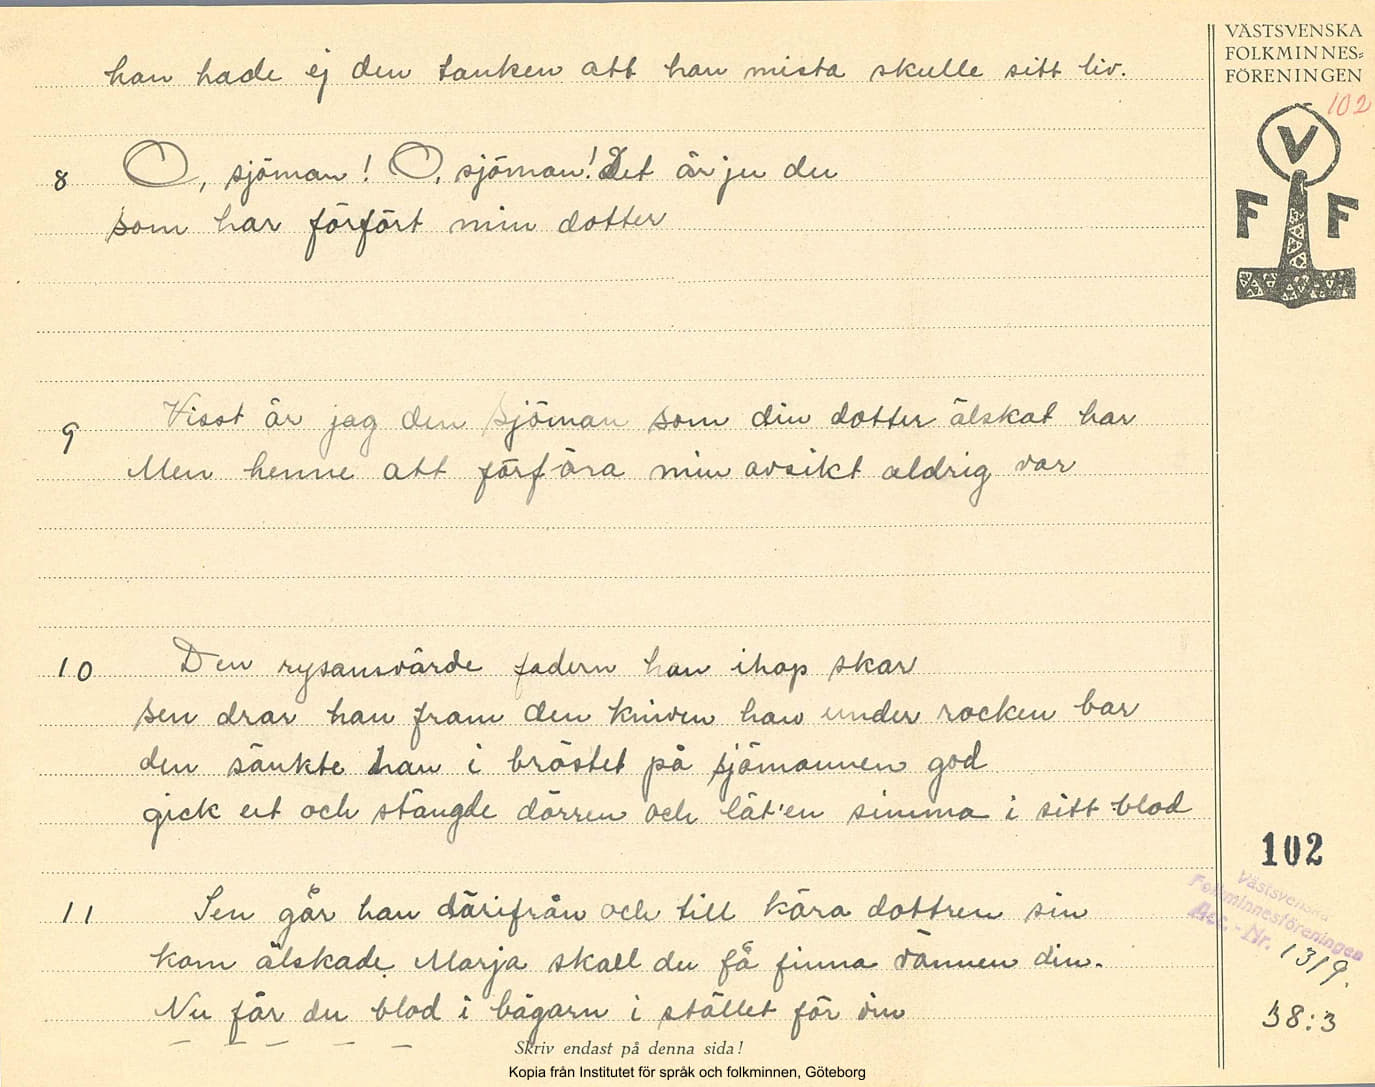 VÄSTSVENSKA
FOLKMINNES=
FÖRENINGEN
102
V
F F
han hade ej den tanken att han mista skulle sitt liv.
8 O, sjöman! O, sjöman! Det är ju du
som har förfört min dotter
9 Visst är jag den sjöman som din dotter älskat har
Men henne att förföra min avsikt aldrig var
10 Den rysansvärde fadern han ihop skar
sen drar han fram den kniven han under rocken bar
den sänkte han i bröstet på sjömannen god
gick ut och stängde dörren och lät'en simma i sitt blod
11 Sen går han därifrån och till kära dottren sin
kom älskade Marja skall du få finna vännen din.
Nu får du blod i bägarn i stället för vin
102
Västsvenska
Folkminnesföreningen
Acc. - Nr. 1319.
38:3
Skriv endast på denna sida!
Kopia från Institutet för språk och folkminnen, Göteborg